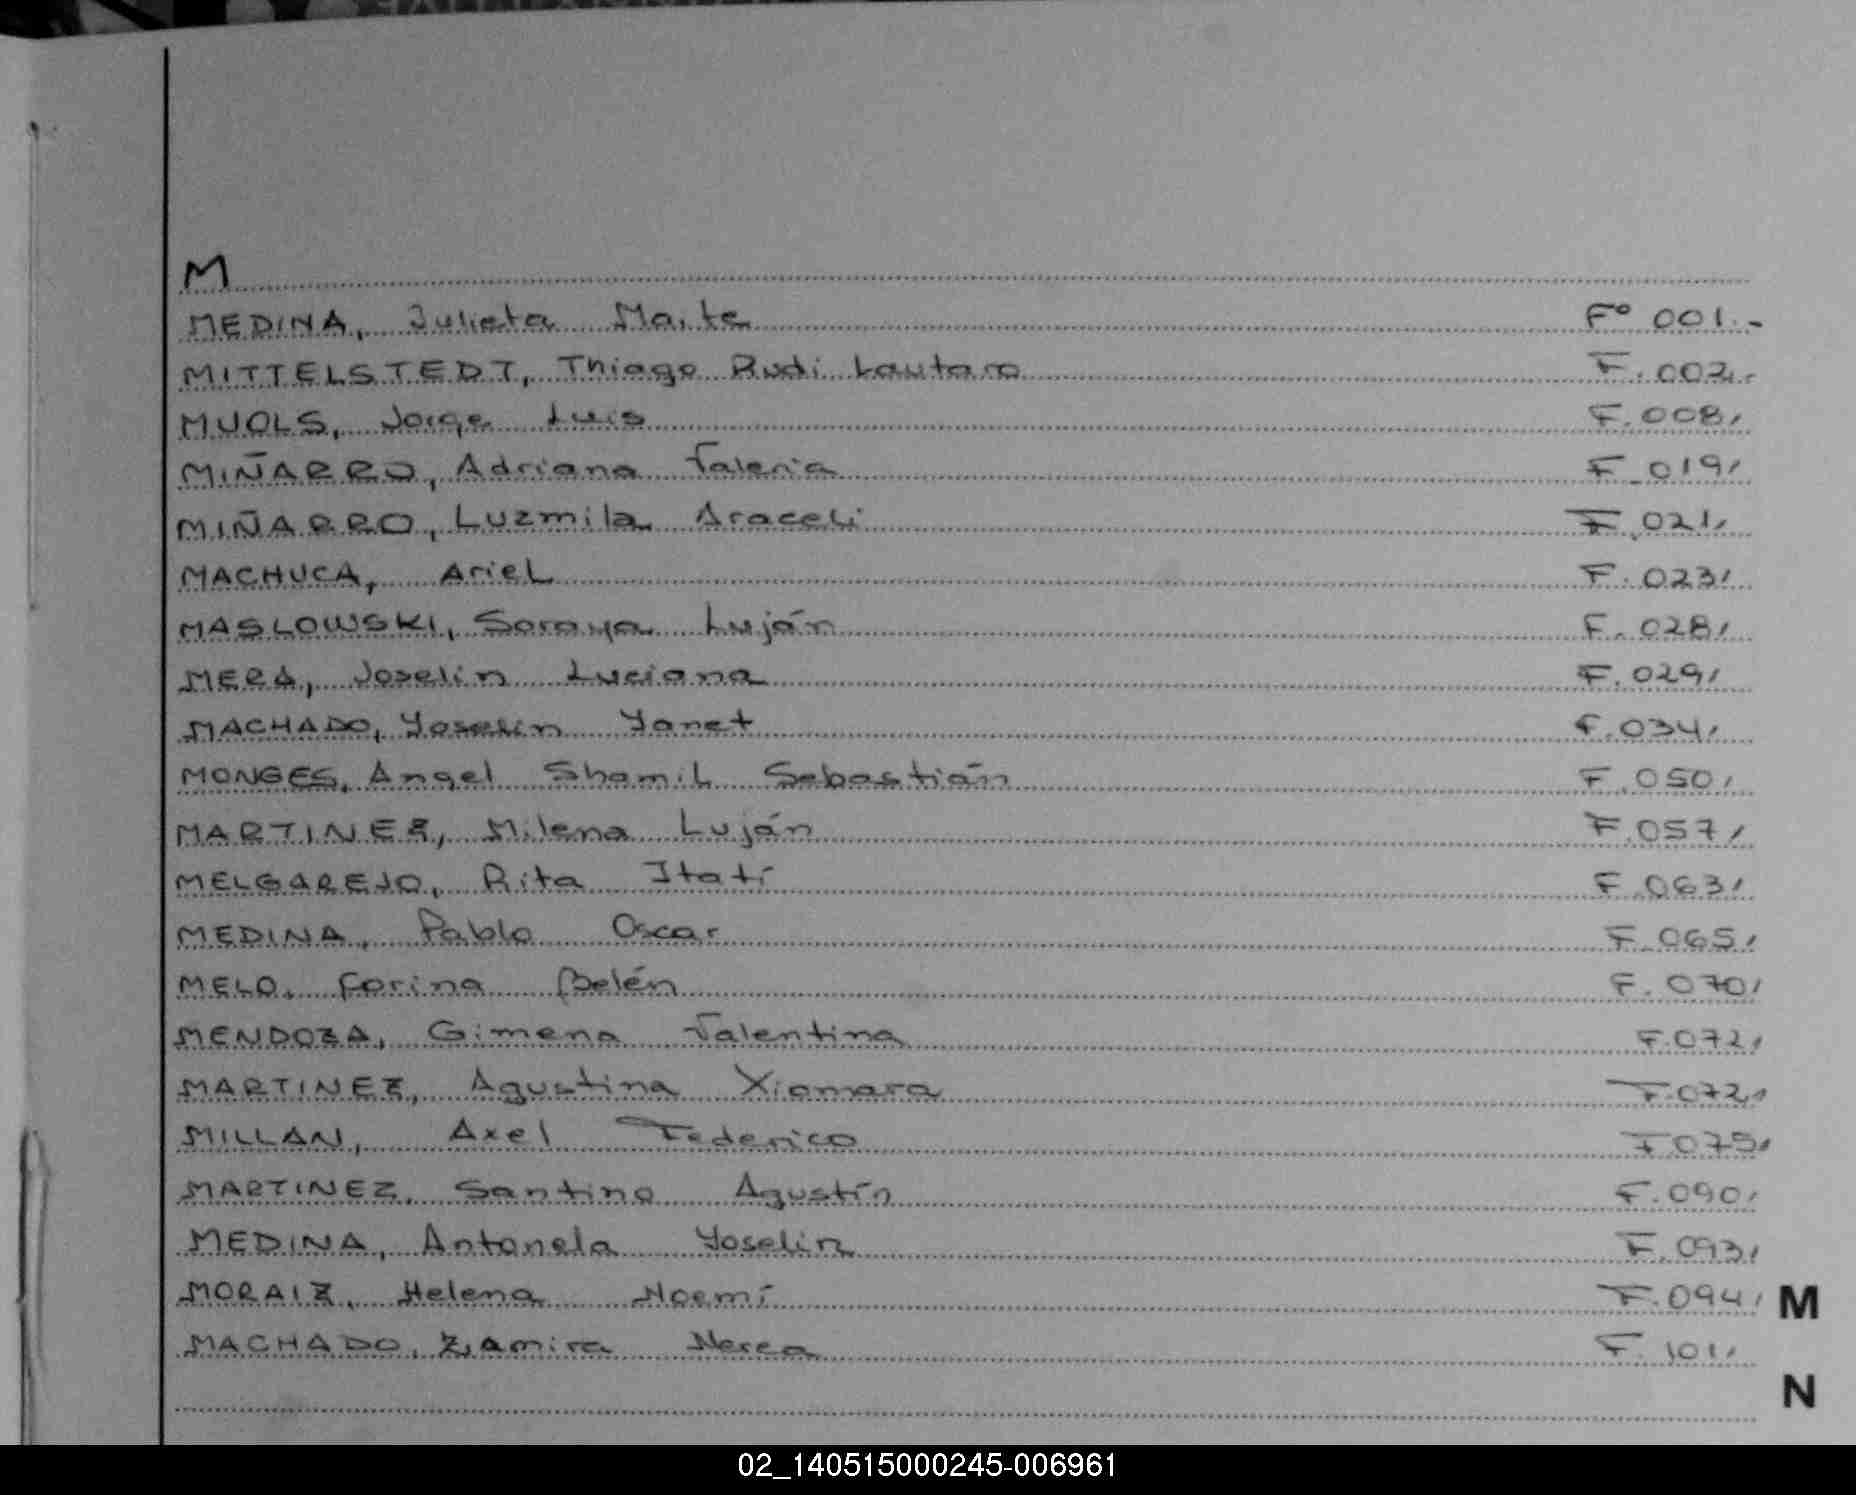 M
MEDINA, Julieta Maite F° 001.-
MITTELSTEDT, Thiago Rudi Lautaro F. 002.-
MUOLS, Jorge Luis F. 008,
MIÑARRO, Adriana Valeria F. 019,
MIÑARRO, Luzmila Araceli F. 021,
MACHUCA, Ariel F. 023,
MASLOWSKI, Soraya Luján F. 028,
MERA, Joselin Luciana F. 029,
MACHADO, Yoselin Yanet F. 034,
MONGES, Angel Shamil Sebastián F. 050,
MARTINEZ, Milena Luján F. 057,
MELGAREJO, Rita Itatí F. 063,
MEDINA, Pablo Oscar F. 065,
MELO, Corina Belén F. 070,
MENDOZA, Gimena Valentina F. 072,
MARTINEZ, Agustina Xiomara F. 072,
MILLAN, Axel Federico F. 075,
MARTINEZ, Santino Agustín F. 090,
MEDINA, Antonela Yoselin F. 093,
MORAIZ, Helena Noemí F. 094, M
MACHADO, Zamira Nerea F. 101,
N
02_140515000245-006961